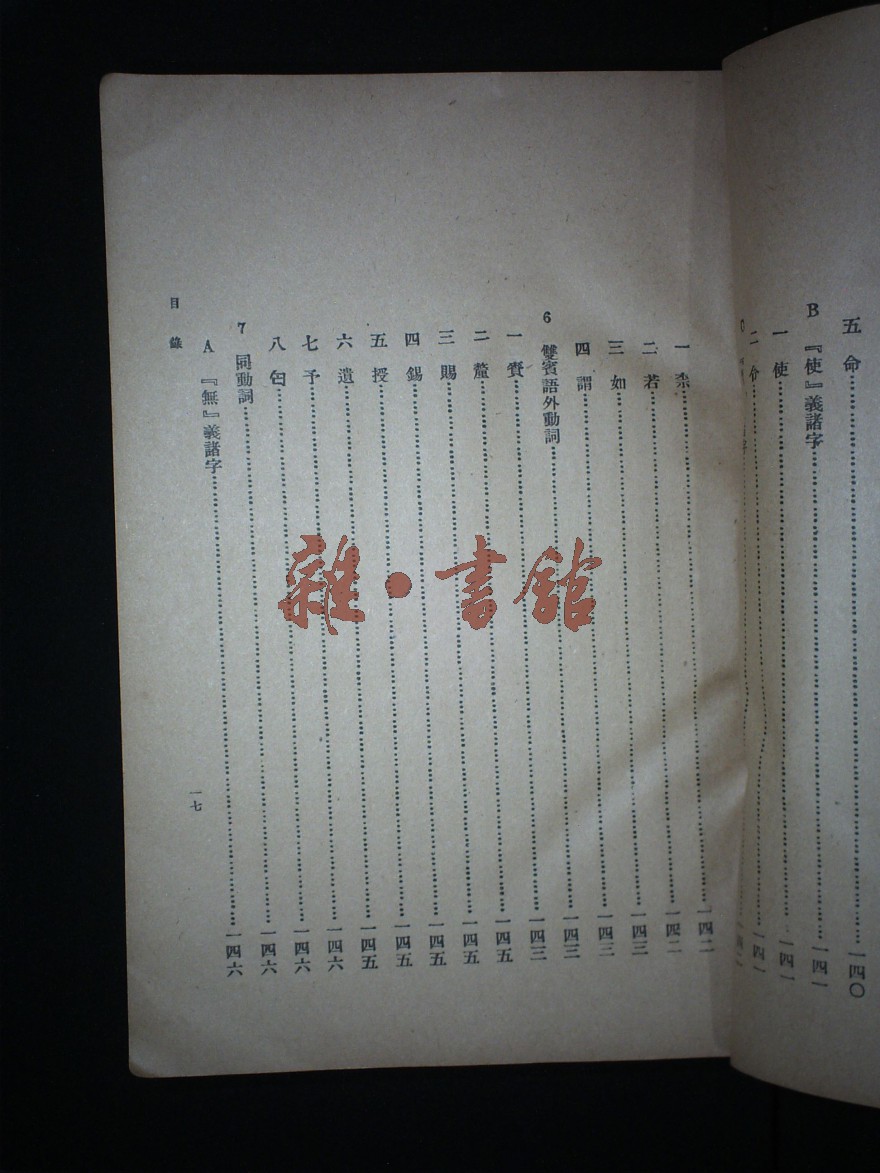 五 命……一四〇
B 『使』義諸字……一四一
一 使……一四一
二 令……一四一
一 柰……一四二
二 若……一四二
三 如……一四三
四 謂……一四三
6 雙賓語外動詞……一四三
一 賚……一四五
二 釐……一四五
三 賜……一四五
四 錫……一四五
五 授……一四五
六 遺……一四六
七 予……一四六
八 匄……一四六
7 同動詞
A 『無』義諸字……一四六
目錄
一七
雜·書館